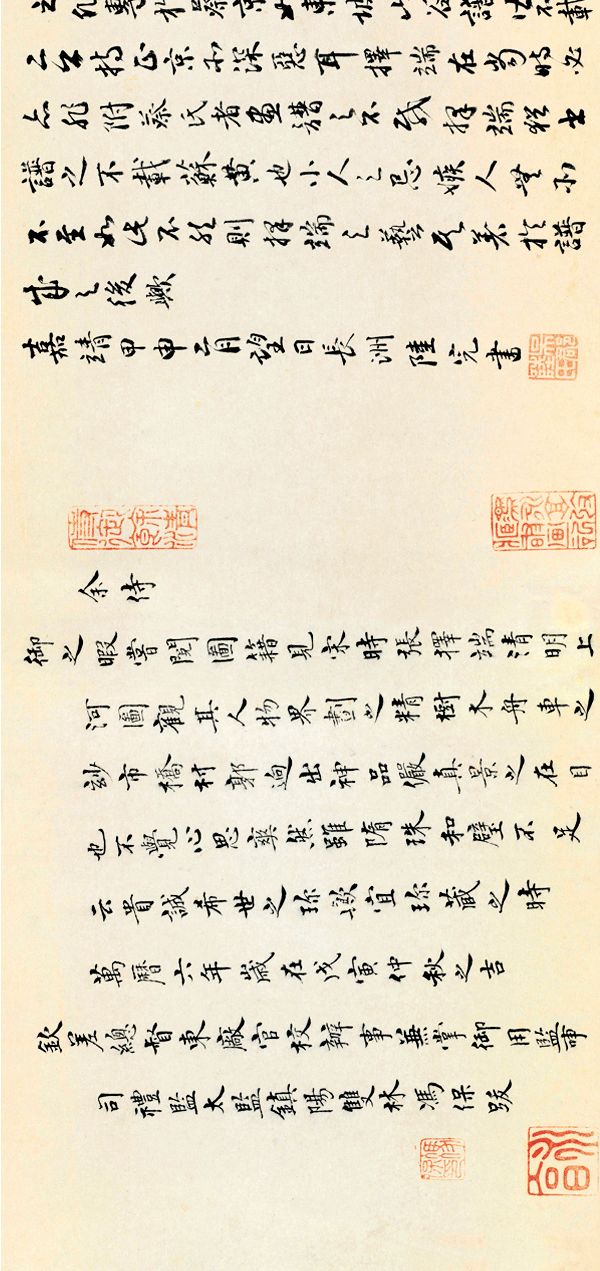 專於蔡京如東坡山谷譜皆不載
二公持正京所深惡耳擇端在當時必
亦非附蔡氏者畫譜之不擇端猶書
譜之不載蘇黃也小人之忌嫉人無所
不至如此不然則擇端之藝其著於譜
成之後歟
嘉靖甲申二月望日長洲陸完書
余侍
御之暇嘗閱圖籍見宋時張擇端清明上
河圖觀其人物界劃之精樹木舟車之
妙市橋村郭迥出神品儼真景之在目
也不覺心思爽然雖隋珠和璧不足
云貴誠希世之珍歟宜珍藏之時
萬曆六年歲在戊寅仲秋之吉
欽差總督東廠官校辦事兼掌御用監事
司禮監太監鎮陽雙林馮保跋